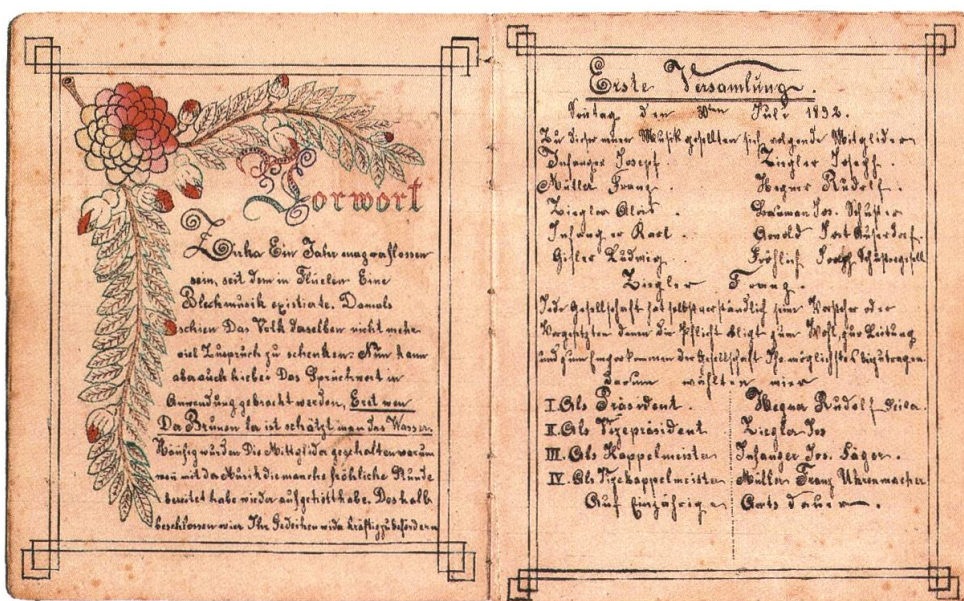 Vorwort
Zirka Ein Jahr mag verflossen
sein, seit dem in Flüelen Eine
Blechmusik existierte. Damals
schien Das Volk daselben nicht mehr
viel Zuspruch zu schenken. Nun kann
aber auch hiebei Das Spruchwort in
Anwendung gebracht werden, Erst wen
Da Brunen lär ist schätzt man das Wasser.
Häufig wurden Die Mittglider gehalten warum
man mit da Musik die manche fröhliche Stunde
bereitet habe wieder aufghört habe. Deshalb
beschlossen wier Ihr Gedeihen wider kräftig zu befördern
Erste Versamlung.
Sontag den 30ten Juli 1892.
Zu dieser neuen Musik gesellten sich folgende Mitglider
Infanger Josepf. Ziegler Joseph.
Müller Franz. Hegner Rudolf.
Ziegler Alois. Bauman Jos. Schuster
Infanger Karl. Arnold
Gisler Ludwig. Fröhlich Joseph Schustergesell
Ziegler Franz.
Jede Gesellschaft hat selbstverständlich seine Vorsteher oder
Vorgesetzten denen die Pflicht obligt zum Wohl, zur Leitung
und zum der Gesellschaft Ihr möglichstes beizutragen
Darum wählten wier
I. Als Präsident. Hegner Rudolf
II. Als Vizepräsident Ziegler Jos
III. Als Kappelmeister Infanger Jos. Säger.
IV. Als Vizekappelmeister Müller Franz Uhrenmacher
Auf Einjährige Amtsdauer.